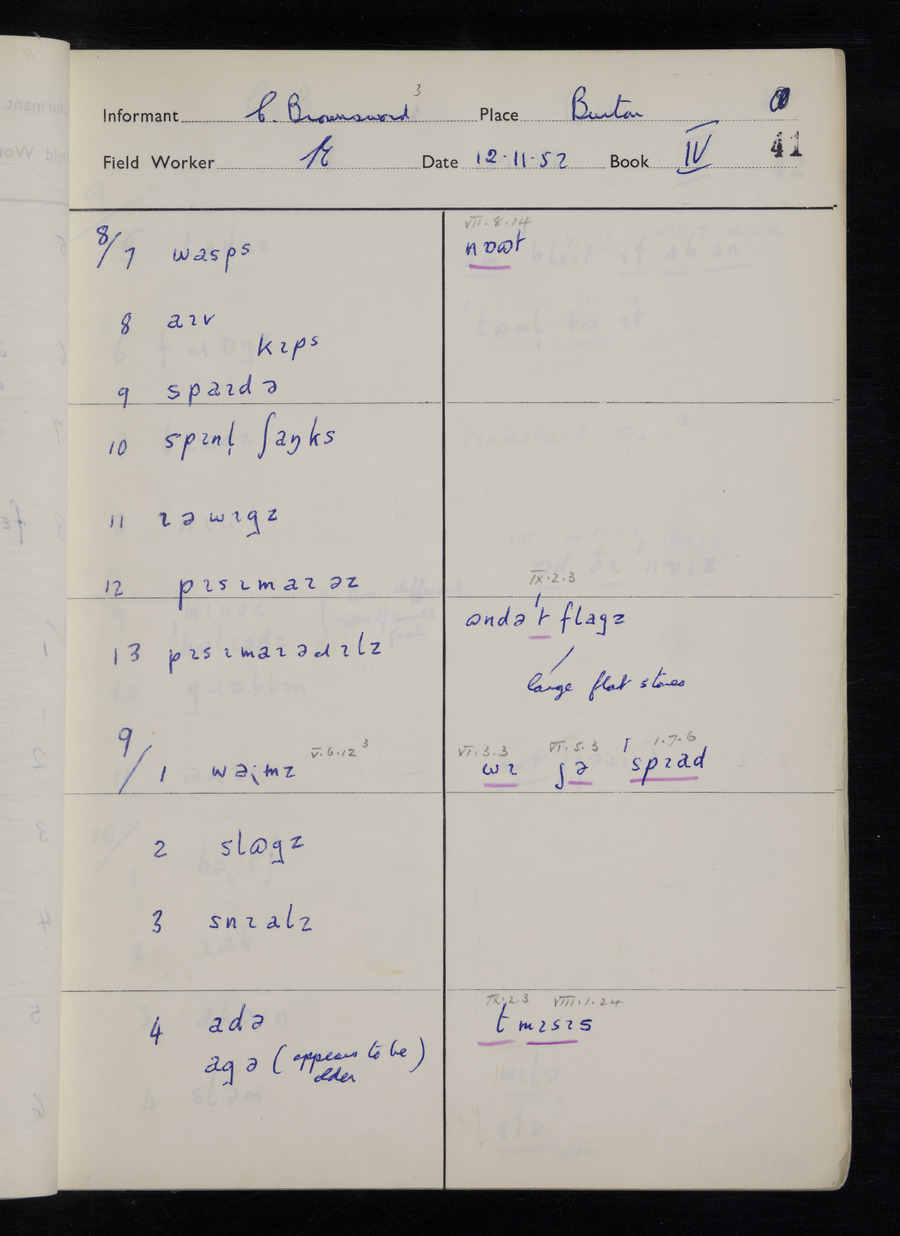 Informant C. Brownsword 3 Place Burton
Field Worker Date 12-11-52 Book IV 41
8/7 wasps
VII.8.14
nɒωt
8 aɪv
kɪps
9 spaɪdə
10 spɪnɩ̣ ʃaŋks
11 ɪəwɪgz
12 pɪsɪmaɪəz
IX.2.3
ωndəʹt flagz
13 pɪsɪmaɪədɪlz
large flat stones
9/1 wəɩ̣mz V.6.12 3
VI.3.3 VI.5.3 1.7.6
wɪ jə spɪad
2 slωgz
3 snɪalz
IX.2.3 VIII.1.24
4 adə
t mɪsɪs
agə (appears to be older)